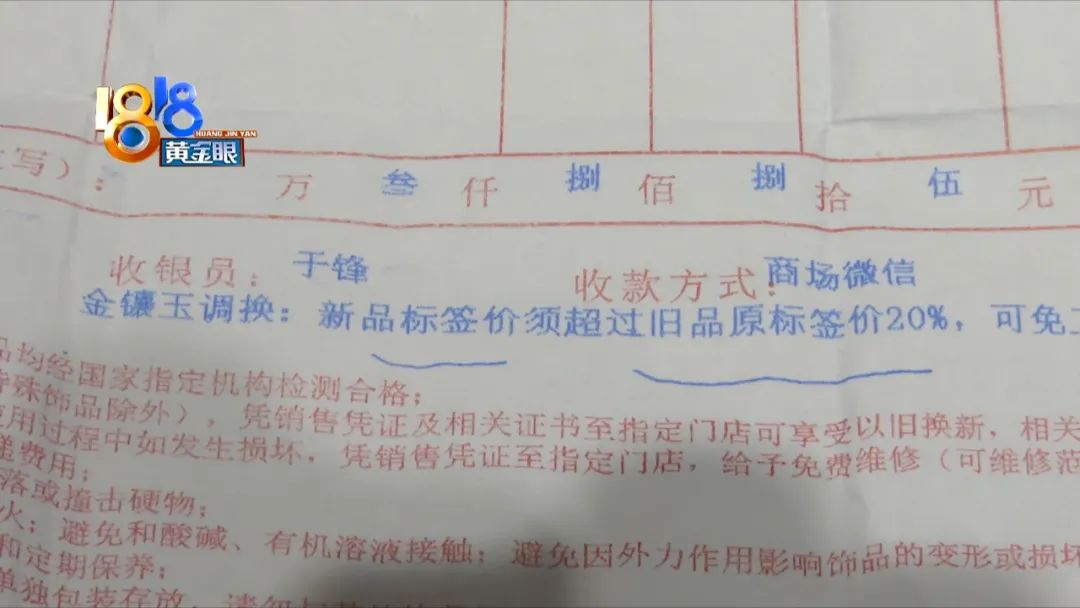 1818
HUANG JIN YAN
黄金眼
写）： 万 叁 仟 捌 佰 捌 拾 伍 元
收银员： 于锋 收款方式： 商场微信
金镶玉调换：新品标签价须超过旧品原标签价20%，可免
品均经国家指定机构检测合格；
特殊饰品除外），凭销售凭证及相关证书至指定门店可享受以旧换新，相关
使用过程中如发生损坏，凭销售凭证至指定门店，给予免费维修（可维修范
费用；
落或撞击硬物；
火；避免和酸碱、有机溶液接触；避免因外力作用影响饰品的变形或损坏
和定期保养；
单独包装存放，请勿与